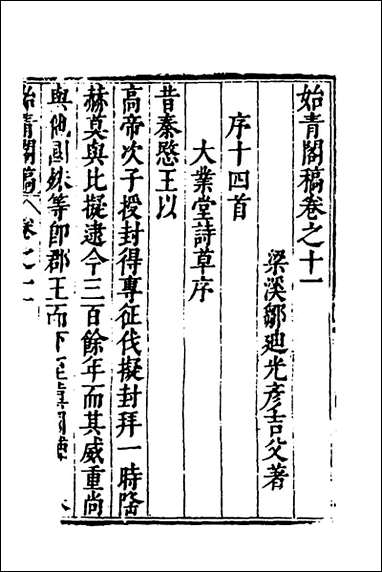 始青閣稿卷之十一
梁溪鄒迪光彥吉父著
序十四首
大業堂詩草序
昔秦愍王以
高帝次子授封得專征伐擬封拜一時隆
赫莫與比擬逮今三百餘年而其威重尚
與他國殊等卽郡王而下至
始青閣稿 卷之十一